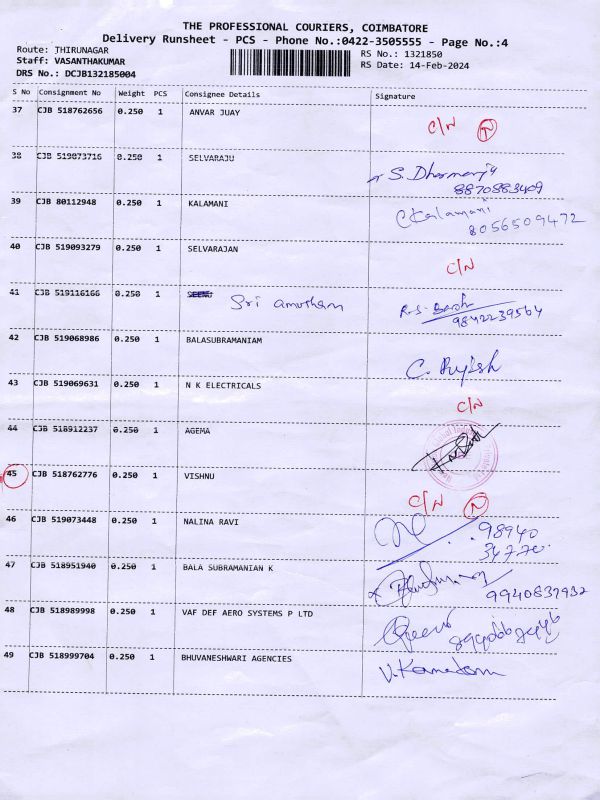 THE PROFESSIONAL COURIERS, COIMBATORE
Delivery Runsheet - PCS - Phone No.:0422-3505555 - Page No.:4
Route: THIRUNAGAR
RS No.: 1321850
Staff: VASANTHAKUMAR
RS Date: 14-Feb-2024
DRS No.: DCJB132185004
S No Consignment No Weight PCS Consignee Details Signature
37 CJB 518762656 0.250 1 ANVAR JUAY C/N N
38 CJB 519073716 0.250 1 SELVARAJU S. Dharmaraj
8870883409
39 CJB 80112948 0.250 1 KALAMANI C Kalamani
8056509472
40 CJB 519093279 0.250 1 SELVARAJAN C/N
41 CJB 519116166 0.250 1 SEENU Sri amutham R.S.
9842239564
42 CJB 519068986 0.250 1 BALASUBRAMANIAM C. Rijish
43 CJB 519069631 0.250 1 N K ELECTRICALS C/N
44 CJB 518912237 0.250 1 AGEMA
45 CJB 518762776 0.250 1 VISHNU C/N N
46 CJB 519073448 0.250 1 NALINA RAVI 98940
34770
47 CJB 518951940 0.250 1 BALA SUBRAMANIAN K
9940837932
48 CJB 518989998 0.250 1 VAF DEF AERO SYSTEMS P LTD
49 CJB 518999704 0.250 1 BHUVANESHWARI AGENCIES